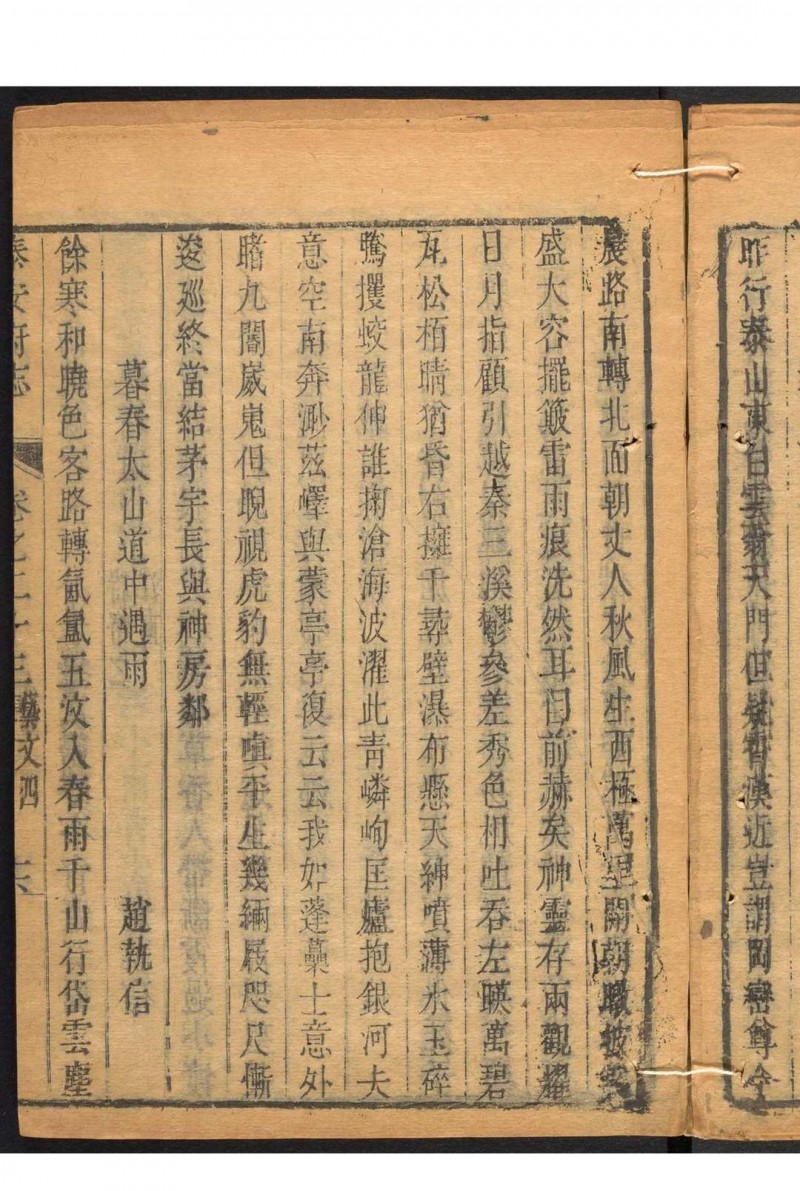 昨行泰山東白雲爾天門但疑霄漢近豈謂岡巒尊今
晨路南轉北面朝丈人秋風生西極萬里開朝暾披
盛大容擺簸雷雨痕洗然耳目前赫矣神靈存兩觀耀
日月指顧引越秦三溪鬱參差秀色相吐吞左睽萬碧
瓦松栢晴猶昏右擁千尋壁瀑布懸天紳噴薄氷玉碎
騰攫蛟龍伸誰掬滄海波濯此靑嶙峋匡廬抱銀河夫
意空南奔渺茲嶧與蒙亭亭復云云我如蓬藁士意外
睹九閽崴嵬但睨視虎豹無輕嗔平生幾緉屐咫尺慚
逡廵終當結茅宇長與神房鄰
暮春太山道中遇雨 趙執信
餘寒和曉色客路轉氤氲五汶入春雨千山行岱雲塵
泰安府志 卷之二十三 藝文四 六